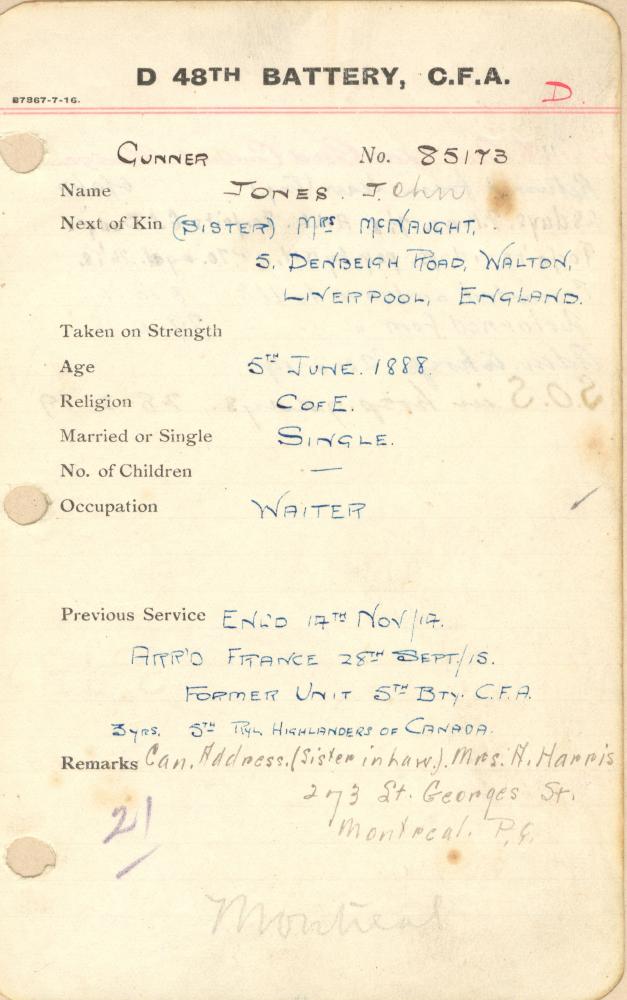 D 48TH BATTERY, C.F.A.
D.
B7867-7-16.
GUNNER No. 85173
Name JONES. John
Next of Kin (SISTER) MRS McNAUGHT,
5. DENBEIGH ROAD, WALTON,
LIVERPOOL, ENGLAND.
Taken on Strength
Age 5TH JUNE. 1888.
Religion C OF E.
Married or Single SINGLE.
No. of Children —
Occupation WAITER
Previous Service ENL'D 17TH NOV/14.
ARR'D FRANCE 28TH SEPT/15.
FORMER UNIT 5TH BTY. C.F.A.
3 yrs. 5TH RYL HIGHLANDERS OF CANADA.
Remarks Can. Address. (Sister in Law). Mrs. A. Harris
273 St. Georges St.
Montreal. P.Q.
21
Montreal